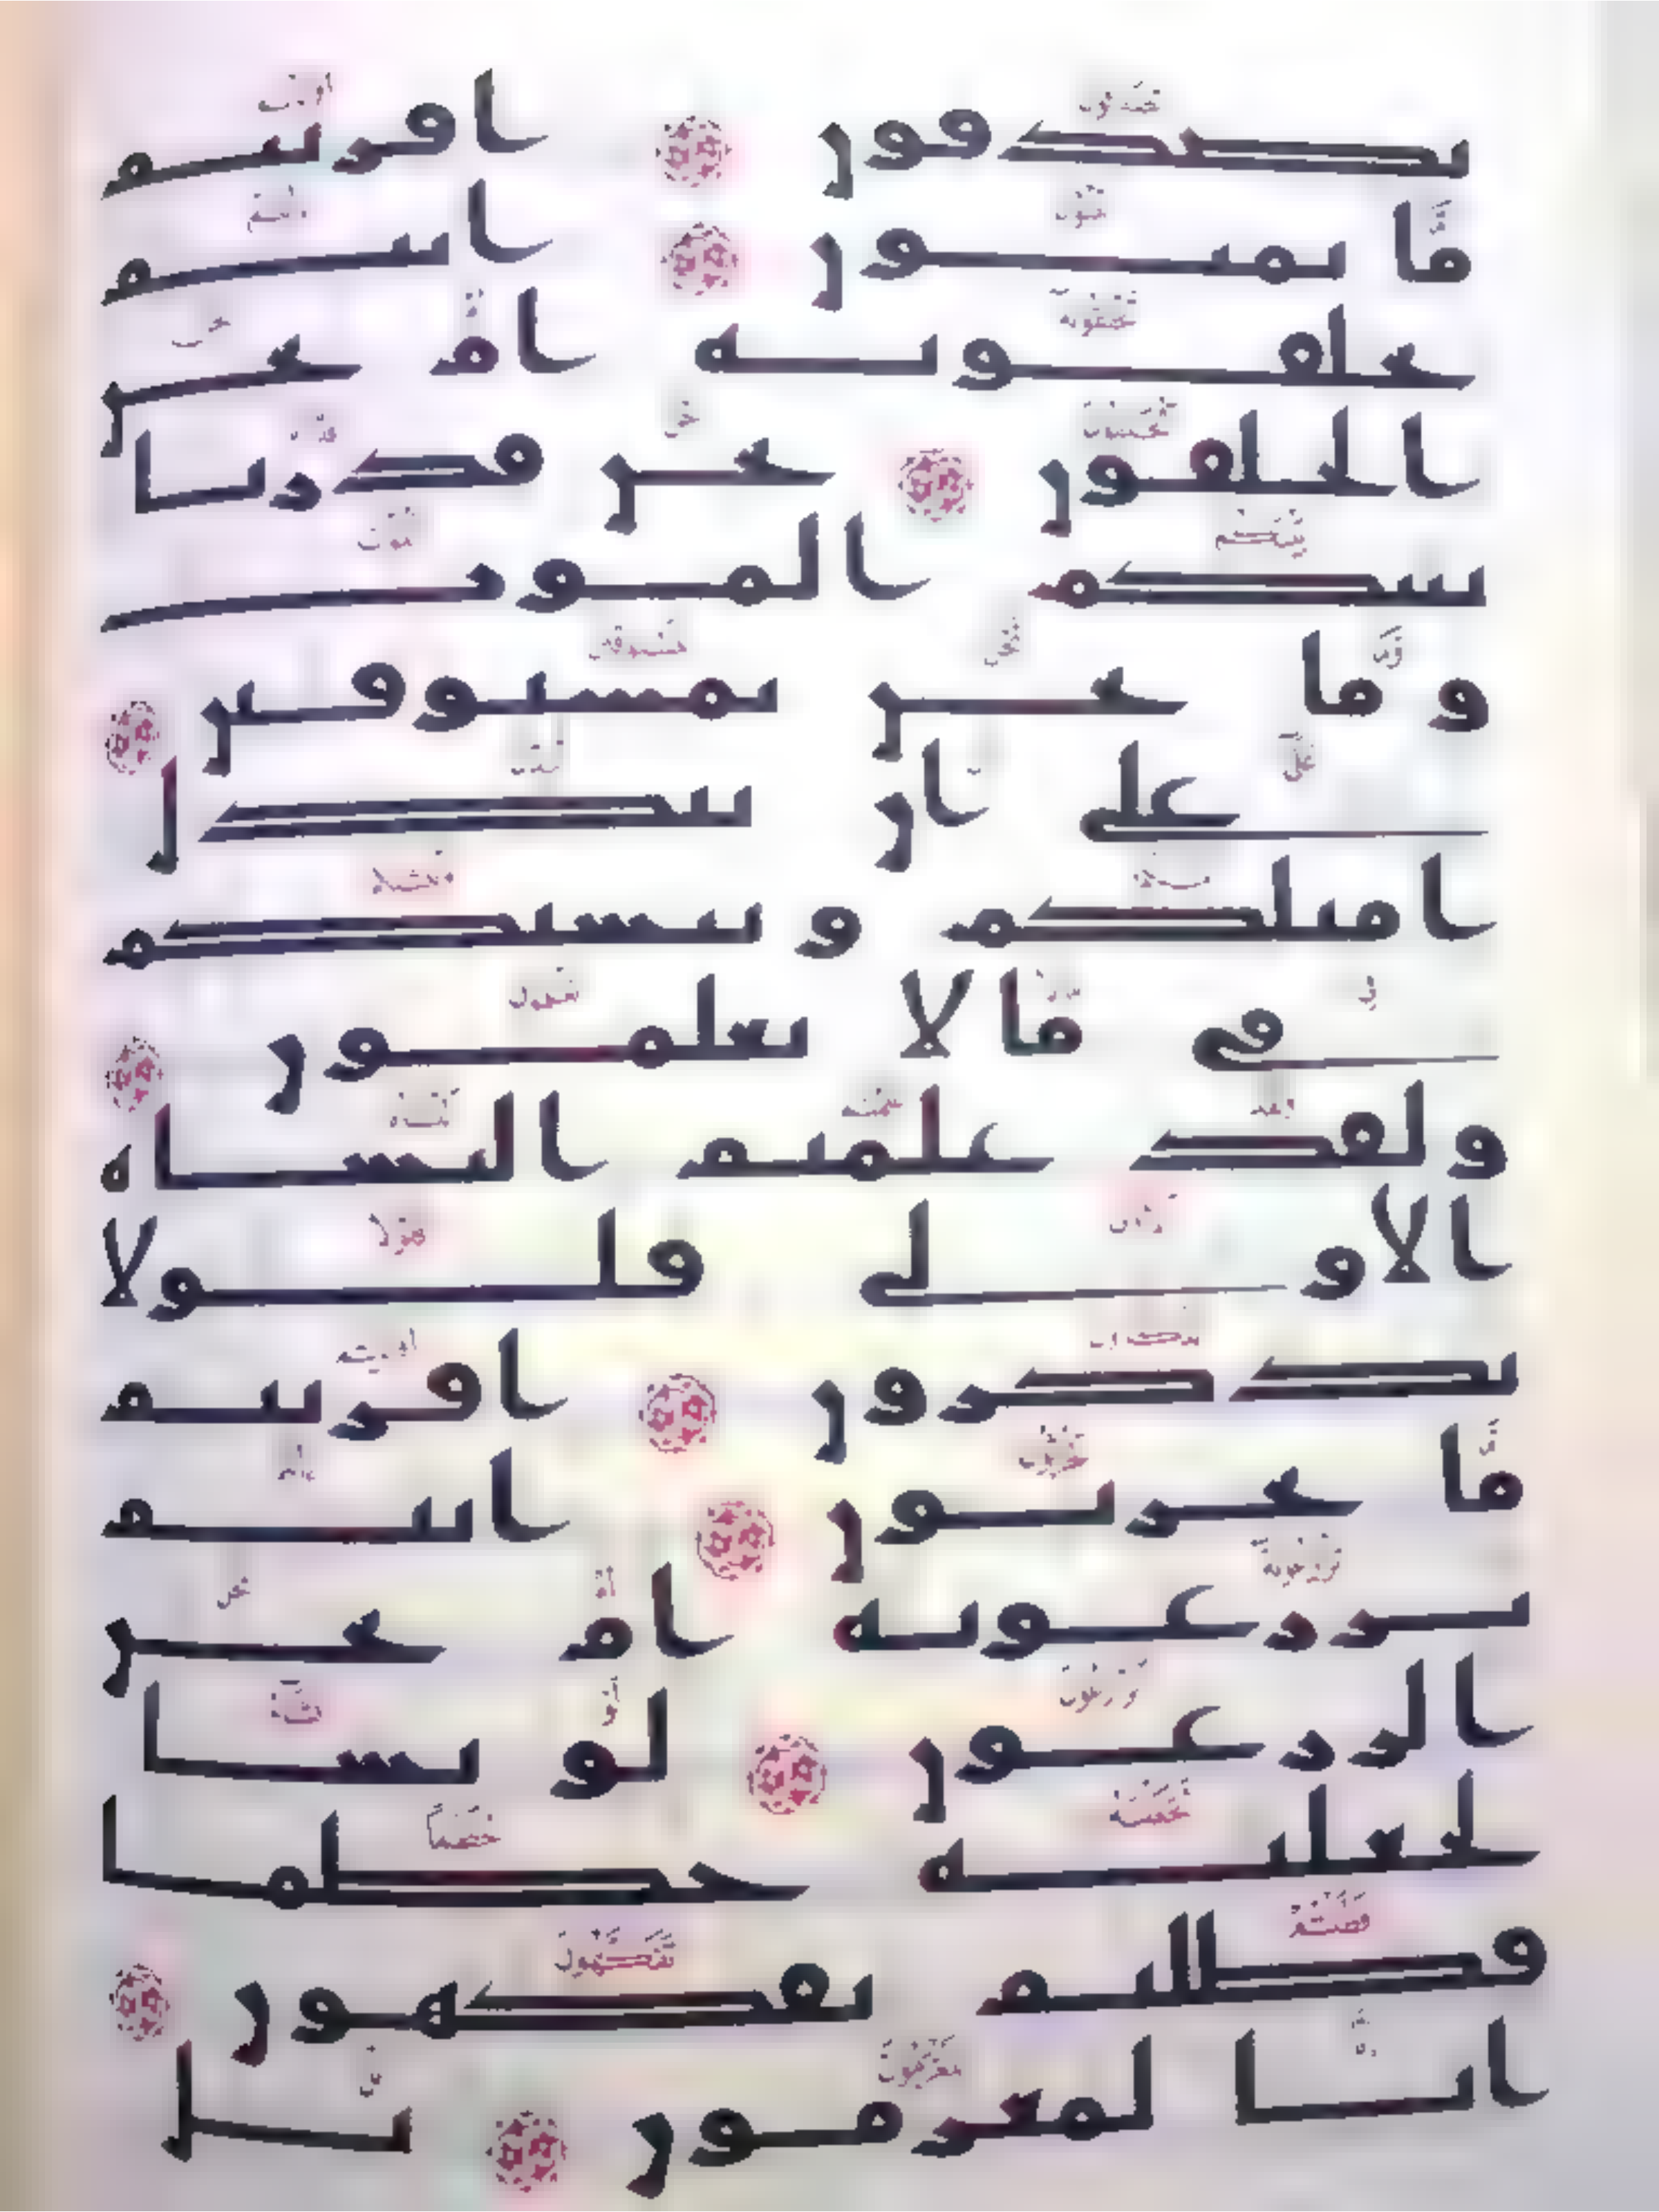 تصدقون افريتم
ما تمنون انتم
تخلقونه ام نحن
الخلقون نحن قدرنا
بينكم الموت
وما نحن بمسبوقين
على ان نبدل
امثلكم وننشئكم
في ما لا تعلمون
ولقد علمتم النشاه
الاولى فلولا
تذكرون افريتم
ما تحرثون انتم
تزرعونه ام نحن
الزرعون لو نشا
لجعلنه حطما
فظلتم تفكهون
انا لمغرمون بل